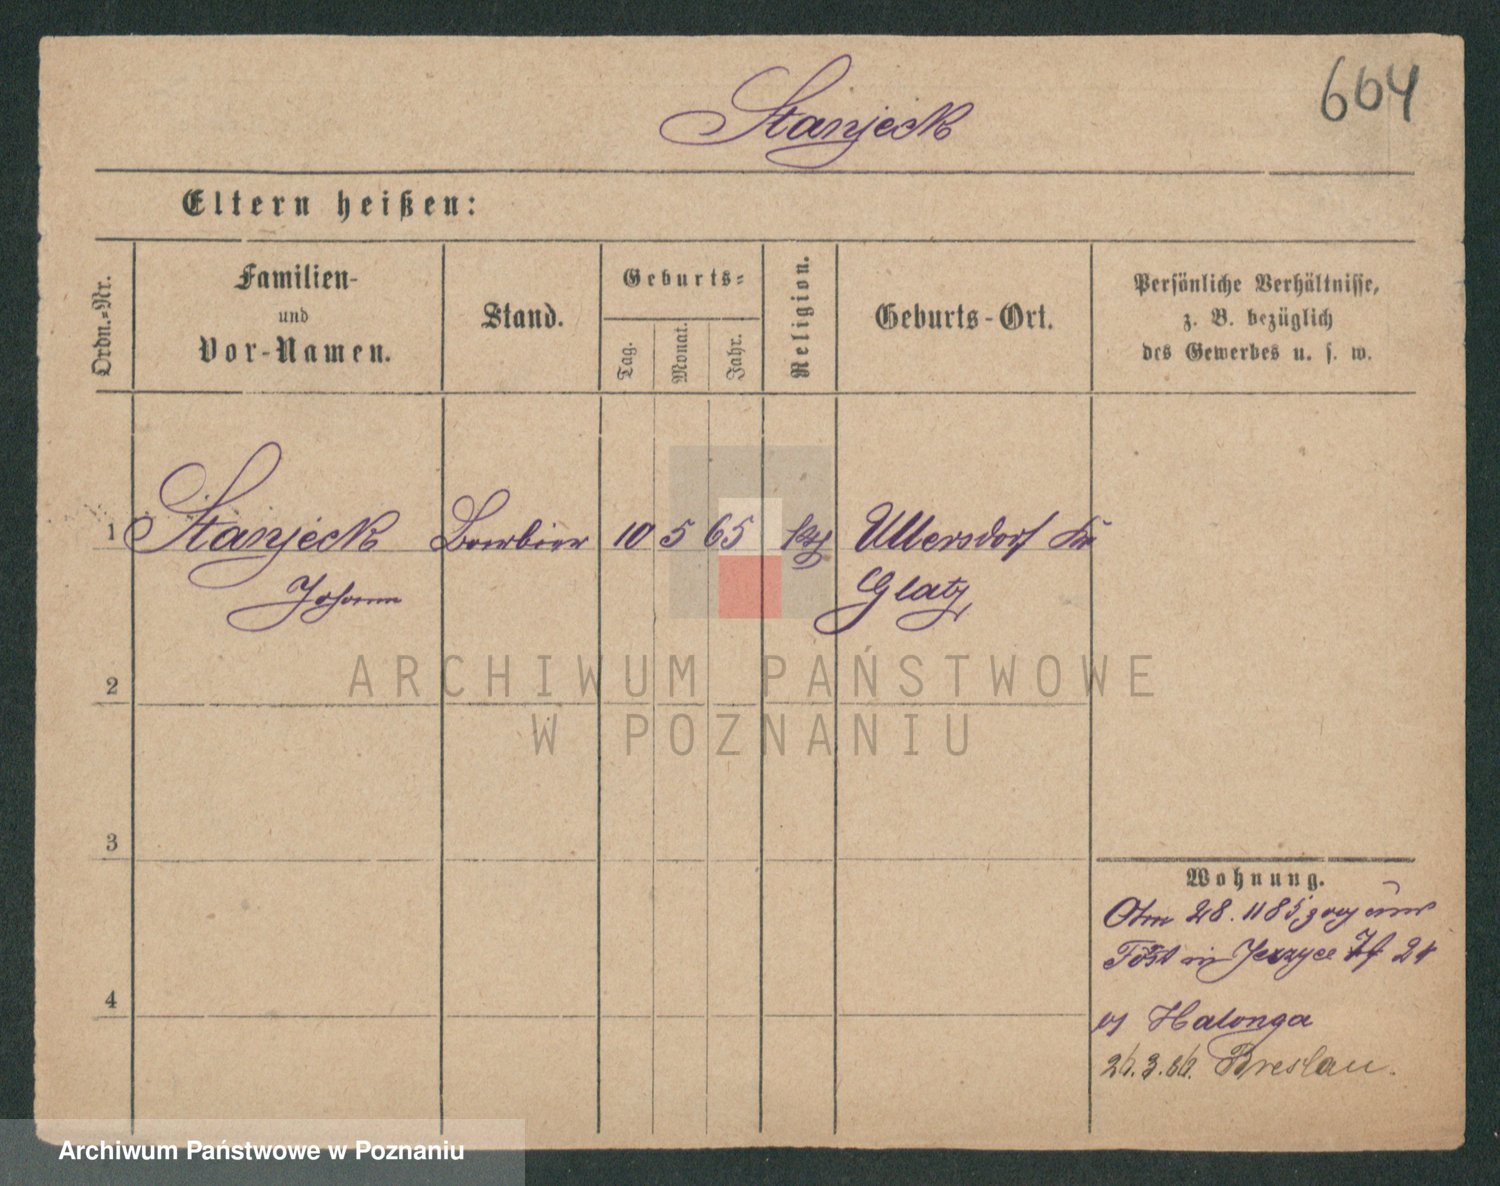 Stanjeck
664
Eltern heißen:
Ordn.-Nr.
Familien-
und
Vor-Namen.
Stand.
Geburts-
Tag.
Monat.
Jahr.
Religion.
Geburts-Ort.
Persönliche Verhältnisse,
z. B. bezüglich
des Gewerbes u. s. w.
1 Stanjeck Barbier 10 5 65 kth Ullersdorf Kr
Johann Glatz
2
3
4
Wohnung.
28. 11 85
in Jerzyce 24
Halonga
26.3.86. Breslau.
ARCHIWUM PAŃSTWOWE
W POZNANIU
Archiwum Państwowe w Poznaniu